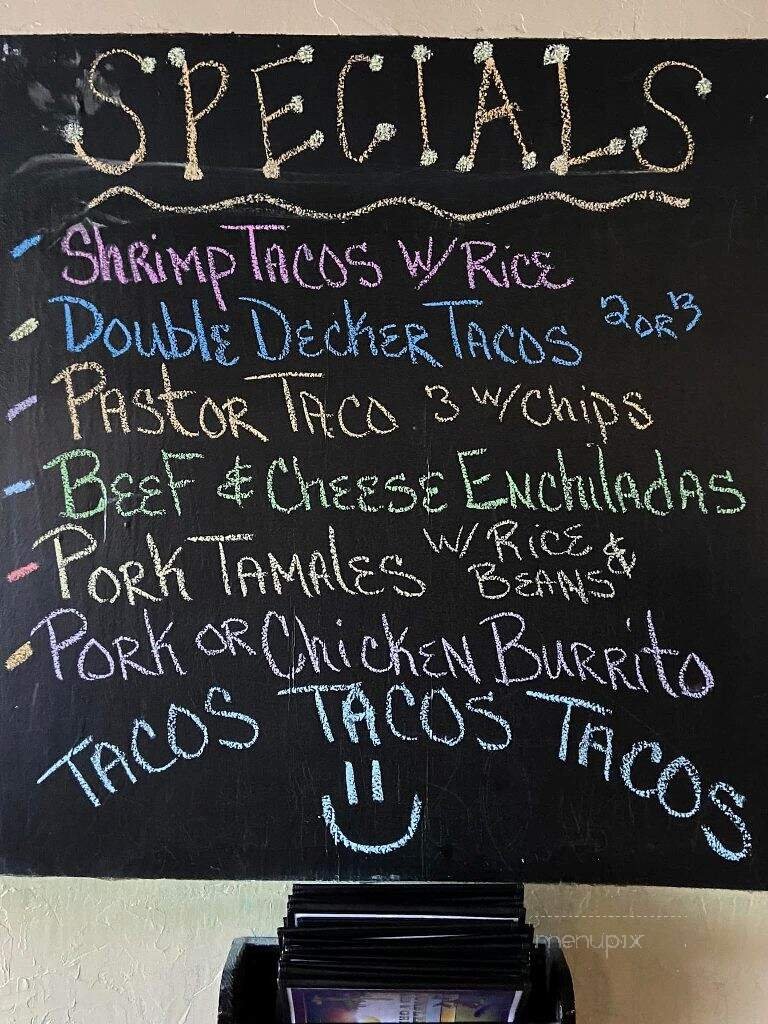 SPECIALS
- Shrimp Tacos w/ Rice
- Double Decker Tacos 2 or 3
- Pastor Taco 3 w/ chips
- Beef & Cheese Enchiladas
- Pork Tamales w/ Rice &
Beans
- Pork or Chicken Burrito
TACOS TACOS TACOS
menupix